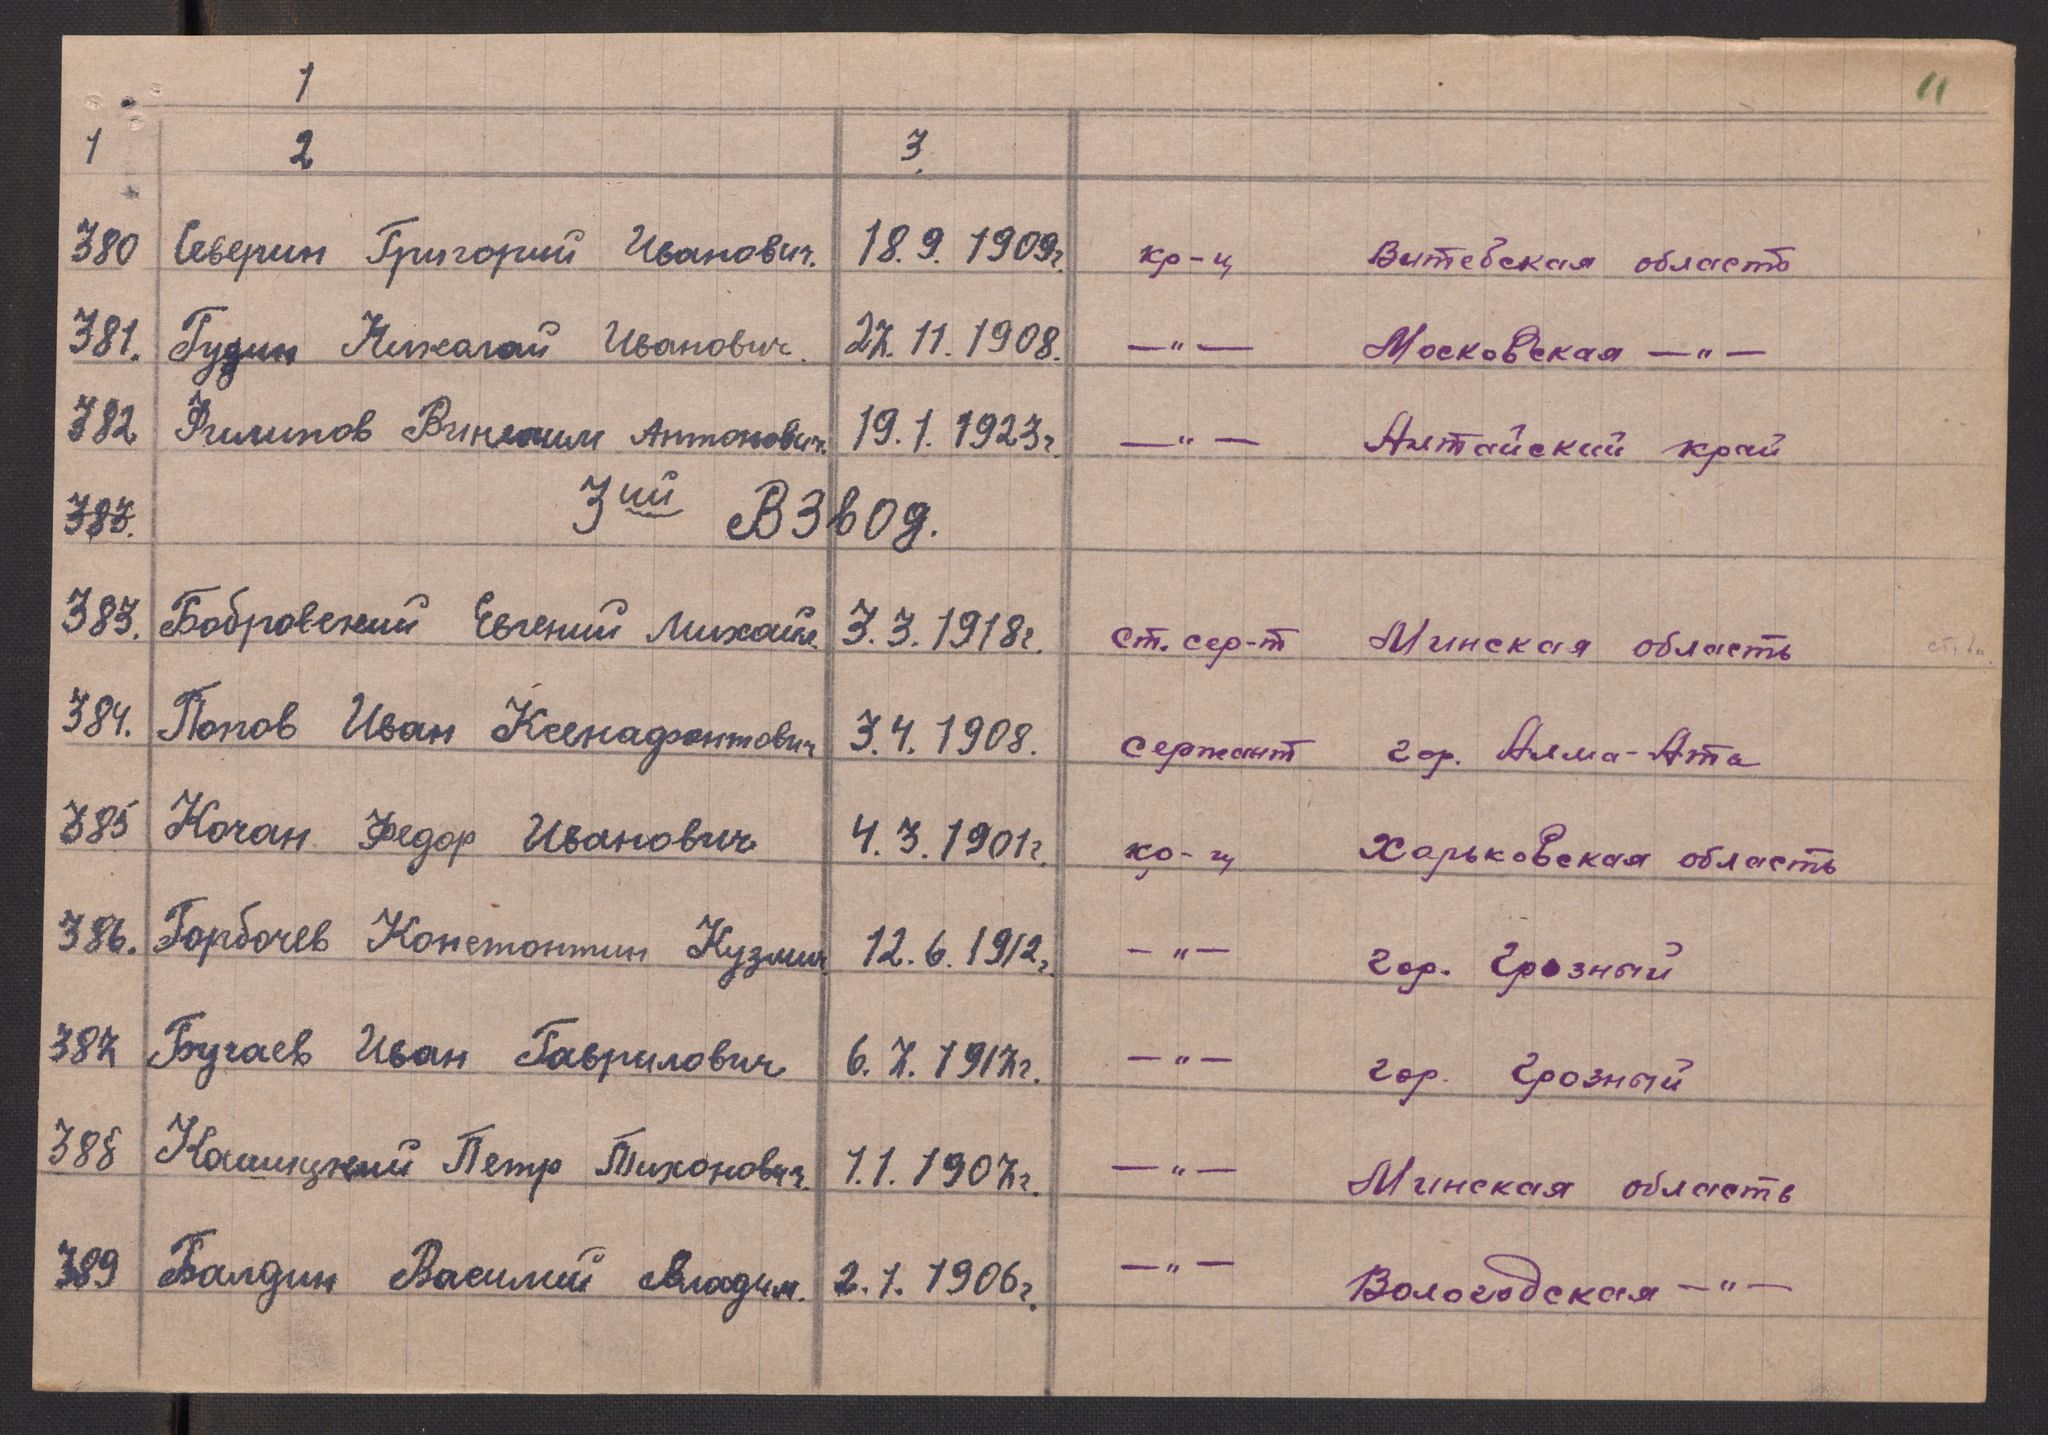 1 11
1 2 3.
380 Северин Григорий Иванович. 18.9.1909г. кр-ц Витебская область
381. Гудин Николай Иванович. 27.11.1908. —"— Московская —"—
382 Филипов Антонович. 19.1.1923г. —"— Алтайский край
383. 3ий Взвод.
383. Бобровский Евгений Михайл. 3.3.1918г. ст. сер-т Минская область
384. Попов Иван Ксенафонтович 3.4.1908. сержант гор. Алма-Ата
385 Кочан Федор Иванович 4.3.1901г. кр-ц Харьковская область
386. Горбочев Константин Кузмич 12.6.1912г. —"— гор. Грозный
387 Бучаев Иван Гаврилович 6.7.1917г. —"— гор. Грозный
388 Кашицкий Петр Тихонович. 1.1.1907г. —"— Минская область
389 Балдин Василий Владим. 2.1.1906г. —"— Вологодская —"—